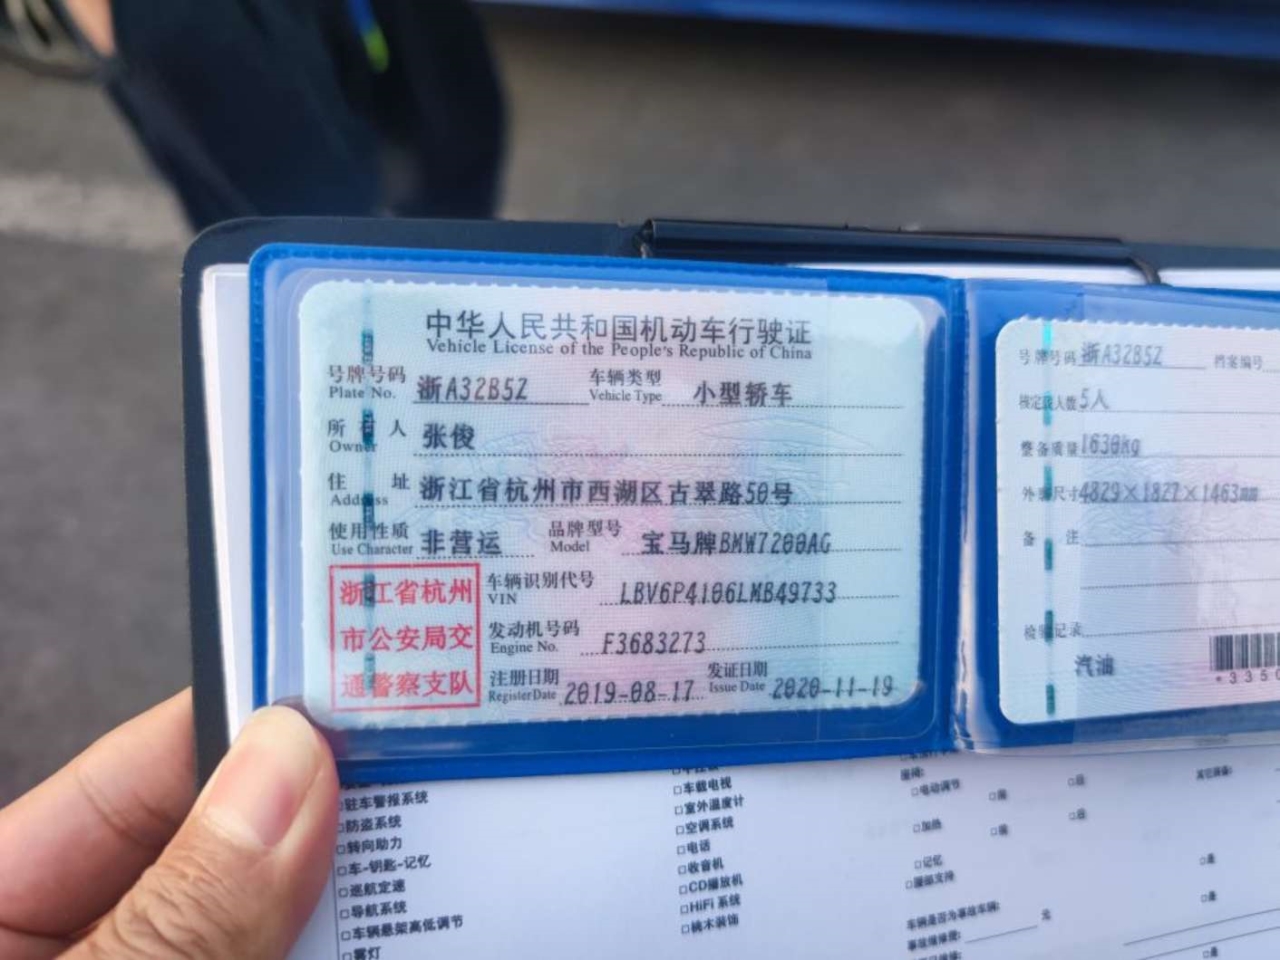 中华人民共和国机动车行驶证
Vehicle License of the People's Republic of China
号牌号码 浙A32B5Z 车辆类型 小型轿车
Plate No. Vehicle Type
所有人 张俊
Owner
住址 浙江省杭州市西湖区古翠路50号
Address
使用性质 非营运 品牌型号 宝马牌BMW7200AG
Use Character Model
浙江省杭州
市公安局交
通警察支队
车辆识别代号 LBV6P4106LMB49733
VIN
发动机号码 F3683273
Engine No.
注册日期 2019-08-17 发证日期 2020-11-19
Register Date Issue Date
号牌号码 浙A32B5Z 档案编号
核定载人数 5人
整备质量 1630kg
外廓尺寸 4829×1827×1463mm
备注
检验记录
汽油
*3350
□驻车警报系统
□防盗系统
□转向助力
□车-钥匙-记忆
□巡航定速
□导航系统
□车辆悬架高低调节
□雾灯
□车载电视
□室外温度计
□空调系统
□电话
□收音机
□CD播放机
□HiFi 系统
□桃木装饰
□电动调节
□加热
□记忆
□腰部支持
□是
□是
车辆是否为事故车辆:
元